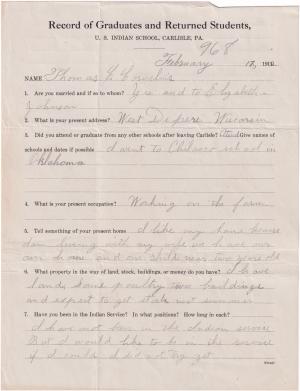 Record of Graduates and Returned Students,
U. S. INDIAN SCHOOL, CARLISLE, PA.
968
February 17, 191
NAME Thomas Cornelius
1. Are you married and if so to whom? Yes and to Elizabeth
Johnson
2. What is your present address? West Depere Wisconsin
3. Did you attend or graduate from any other schools after leaving Carlisle? Give names of
schools and dates if possible I went to Chilocco school in
Oklahoma
4. What is your present occupation? Working on the farm
5. Tell something of your present home I like my home because
I am living with my wife we have our
own home and one child near two years old
6. What property in the way of land, stock, buildings, or money do you have? I have
land, some poultry two buildings
and expect to get stock next summer
7. Have you been in the Indian Service? In what positions? How long in each?
I have not been in the Indian service
But I would like to be in the service
if I could I did not try yet